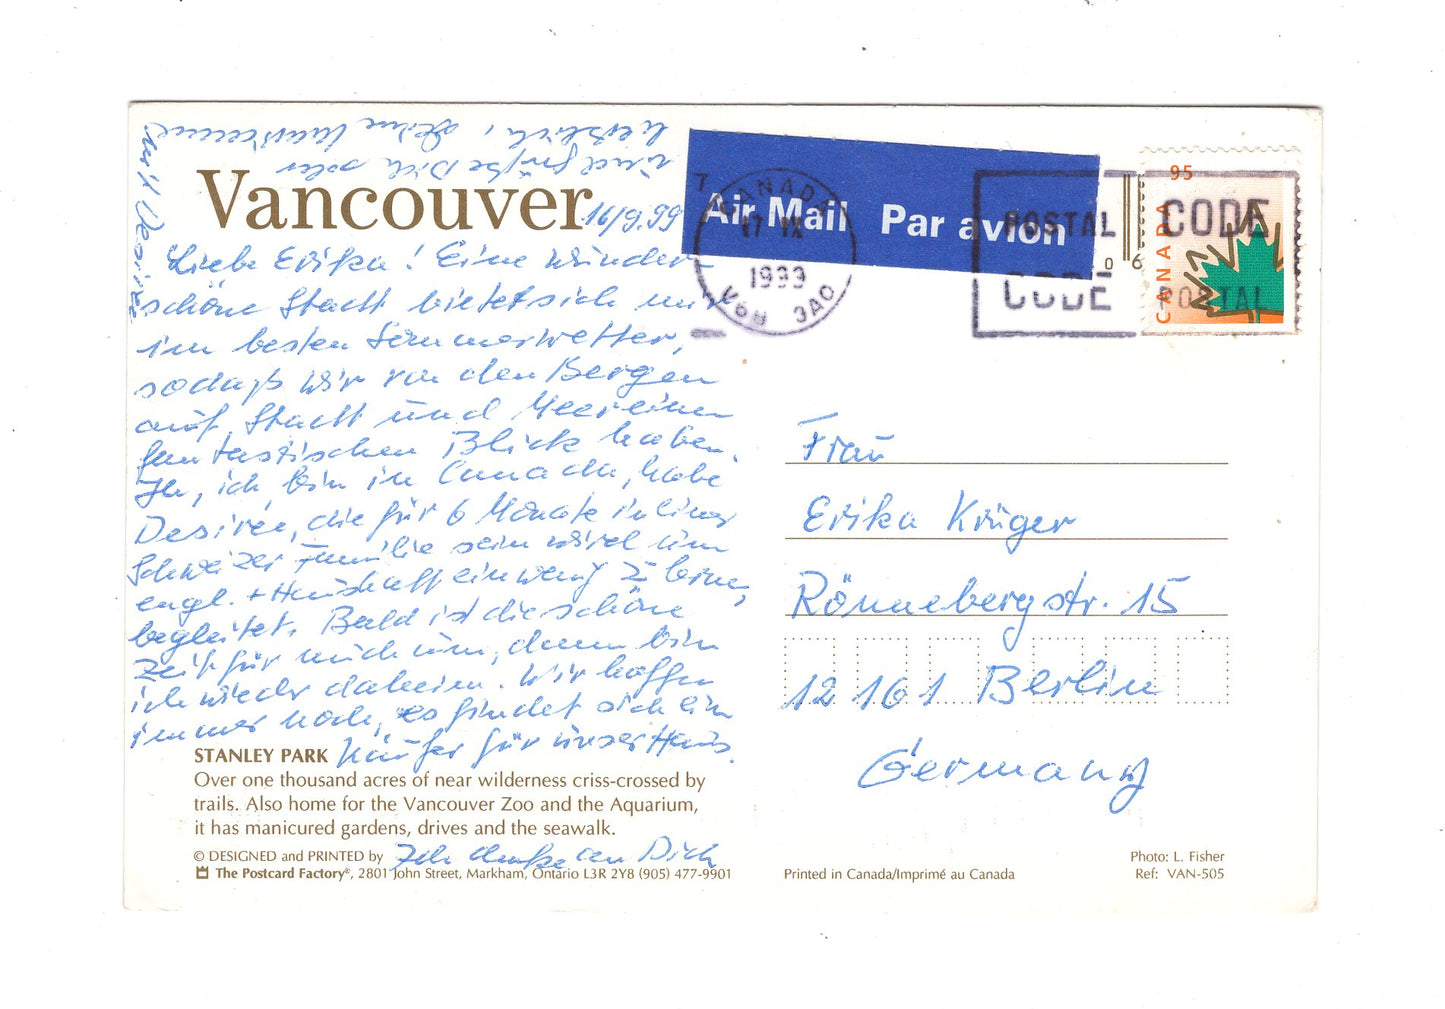 Vancouver
16/9.99
Liebe Erika! Eine wunder-
schöne Stadt bietet sich mir
im besten Sommerwetter,
sodaß wir von den Bergen
auf Stadt und Meer einen
fantastischen Blick haben.
Ja, ich bin in Canada, habe
Desirée, die für 6 Monate in einer
Schweizer Familie sein wird um
engl. + Haushalt ein wenig z. lernen,
begleitet. Bald ist die schöne
Zeit für mich um, dann bin
ich wieder daheim. Wir hoffen
immer noch, es findet sich ein
Käufer für unser Haus.
STANLEY PARK
Over one thousand acres of near wilderness criss-crossed by
trails. Also home for the Vancouver Zoo and the Aquarium,
it has manicured gardens, drives and the seawalk.
Ich denke an Dich
und grüße Dich sehr
herzlich, Deine
mit Desirée
© DESIGNED and PRINTED by
The Postcard Factory®, 2801 John Street, Markham, Ontario L3R 2Y8 (905) 477-9901
Air Mail Par avion
CANADA
17 IX
1999
V6H 3A0
POSTAL CODE
CODE POSTAL
95
CANADA
06
Frau
Erika Krüger
Rönnebergstr. 15
12161 Berlin
Germany
Printed in Canada/Imprimé au Canada
Photo: L. Fisher
Ref: VAN-505